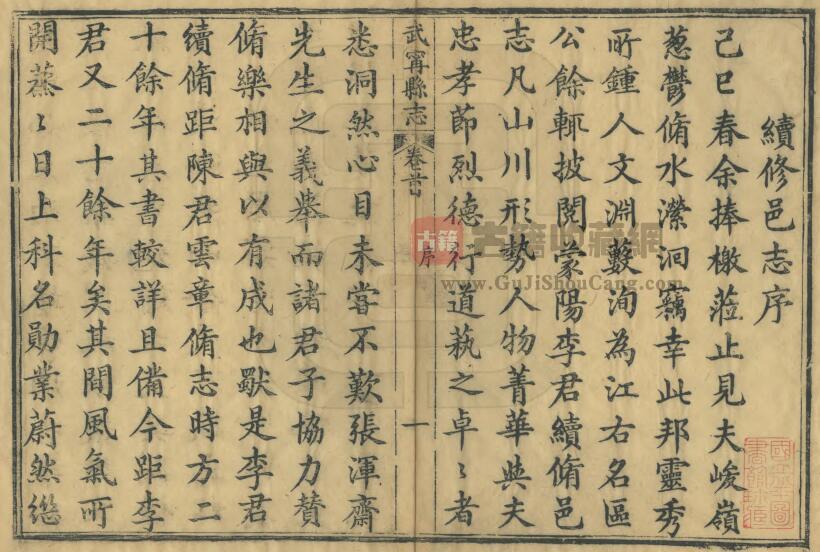 續修邑志序
己巳春余捧檄蒞止見夫峻嶺
蔥鬱脩水瀠洄竊幸此邦靈秀
所鍾人文淵藪洵為江右名區
公餘輒披閱蒙陽李君續脩邑
志凡山川形勢人物菁華與夫
忠孝節烈德行道蓺之卓〻者
武寧縣志
卷首
序
一
悉洞然心目未嘗不歎張渾齋
先生之義舉而諸君子協力贊
脩樂相與以有成也獸是李君
續脩距陳君雲章脩志時方二
十餘年其書較詳且備今距李
君又二十餘年矣其間風氣所
開蒸〻日上科名勛業蔚然繼
古籍
古籍收藏網
www.GuJiShouCang.com